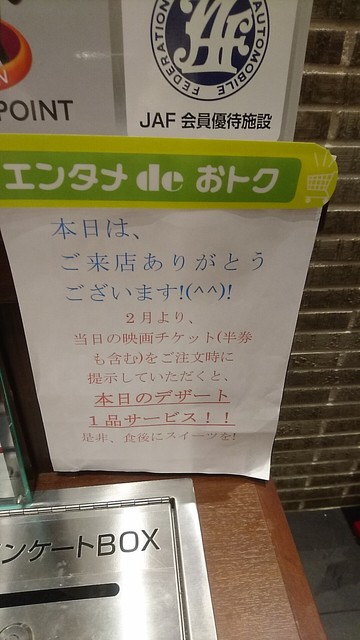 POINT
AUTOMOBILE
FEDERATION
JAF 会員優待施設
エンタメ de おトク
本日は、
ご来店ありがとう
ございます!(^^)!
2月より、
当日の映画チケット(半券
も含む)をご注文時に
提示していただくと、
本日のデザート
1品サービス！！
是非、食後にスイーツを!
ンケートBOX